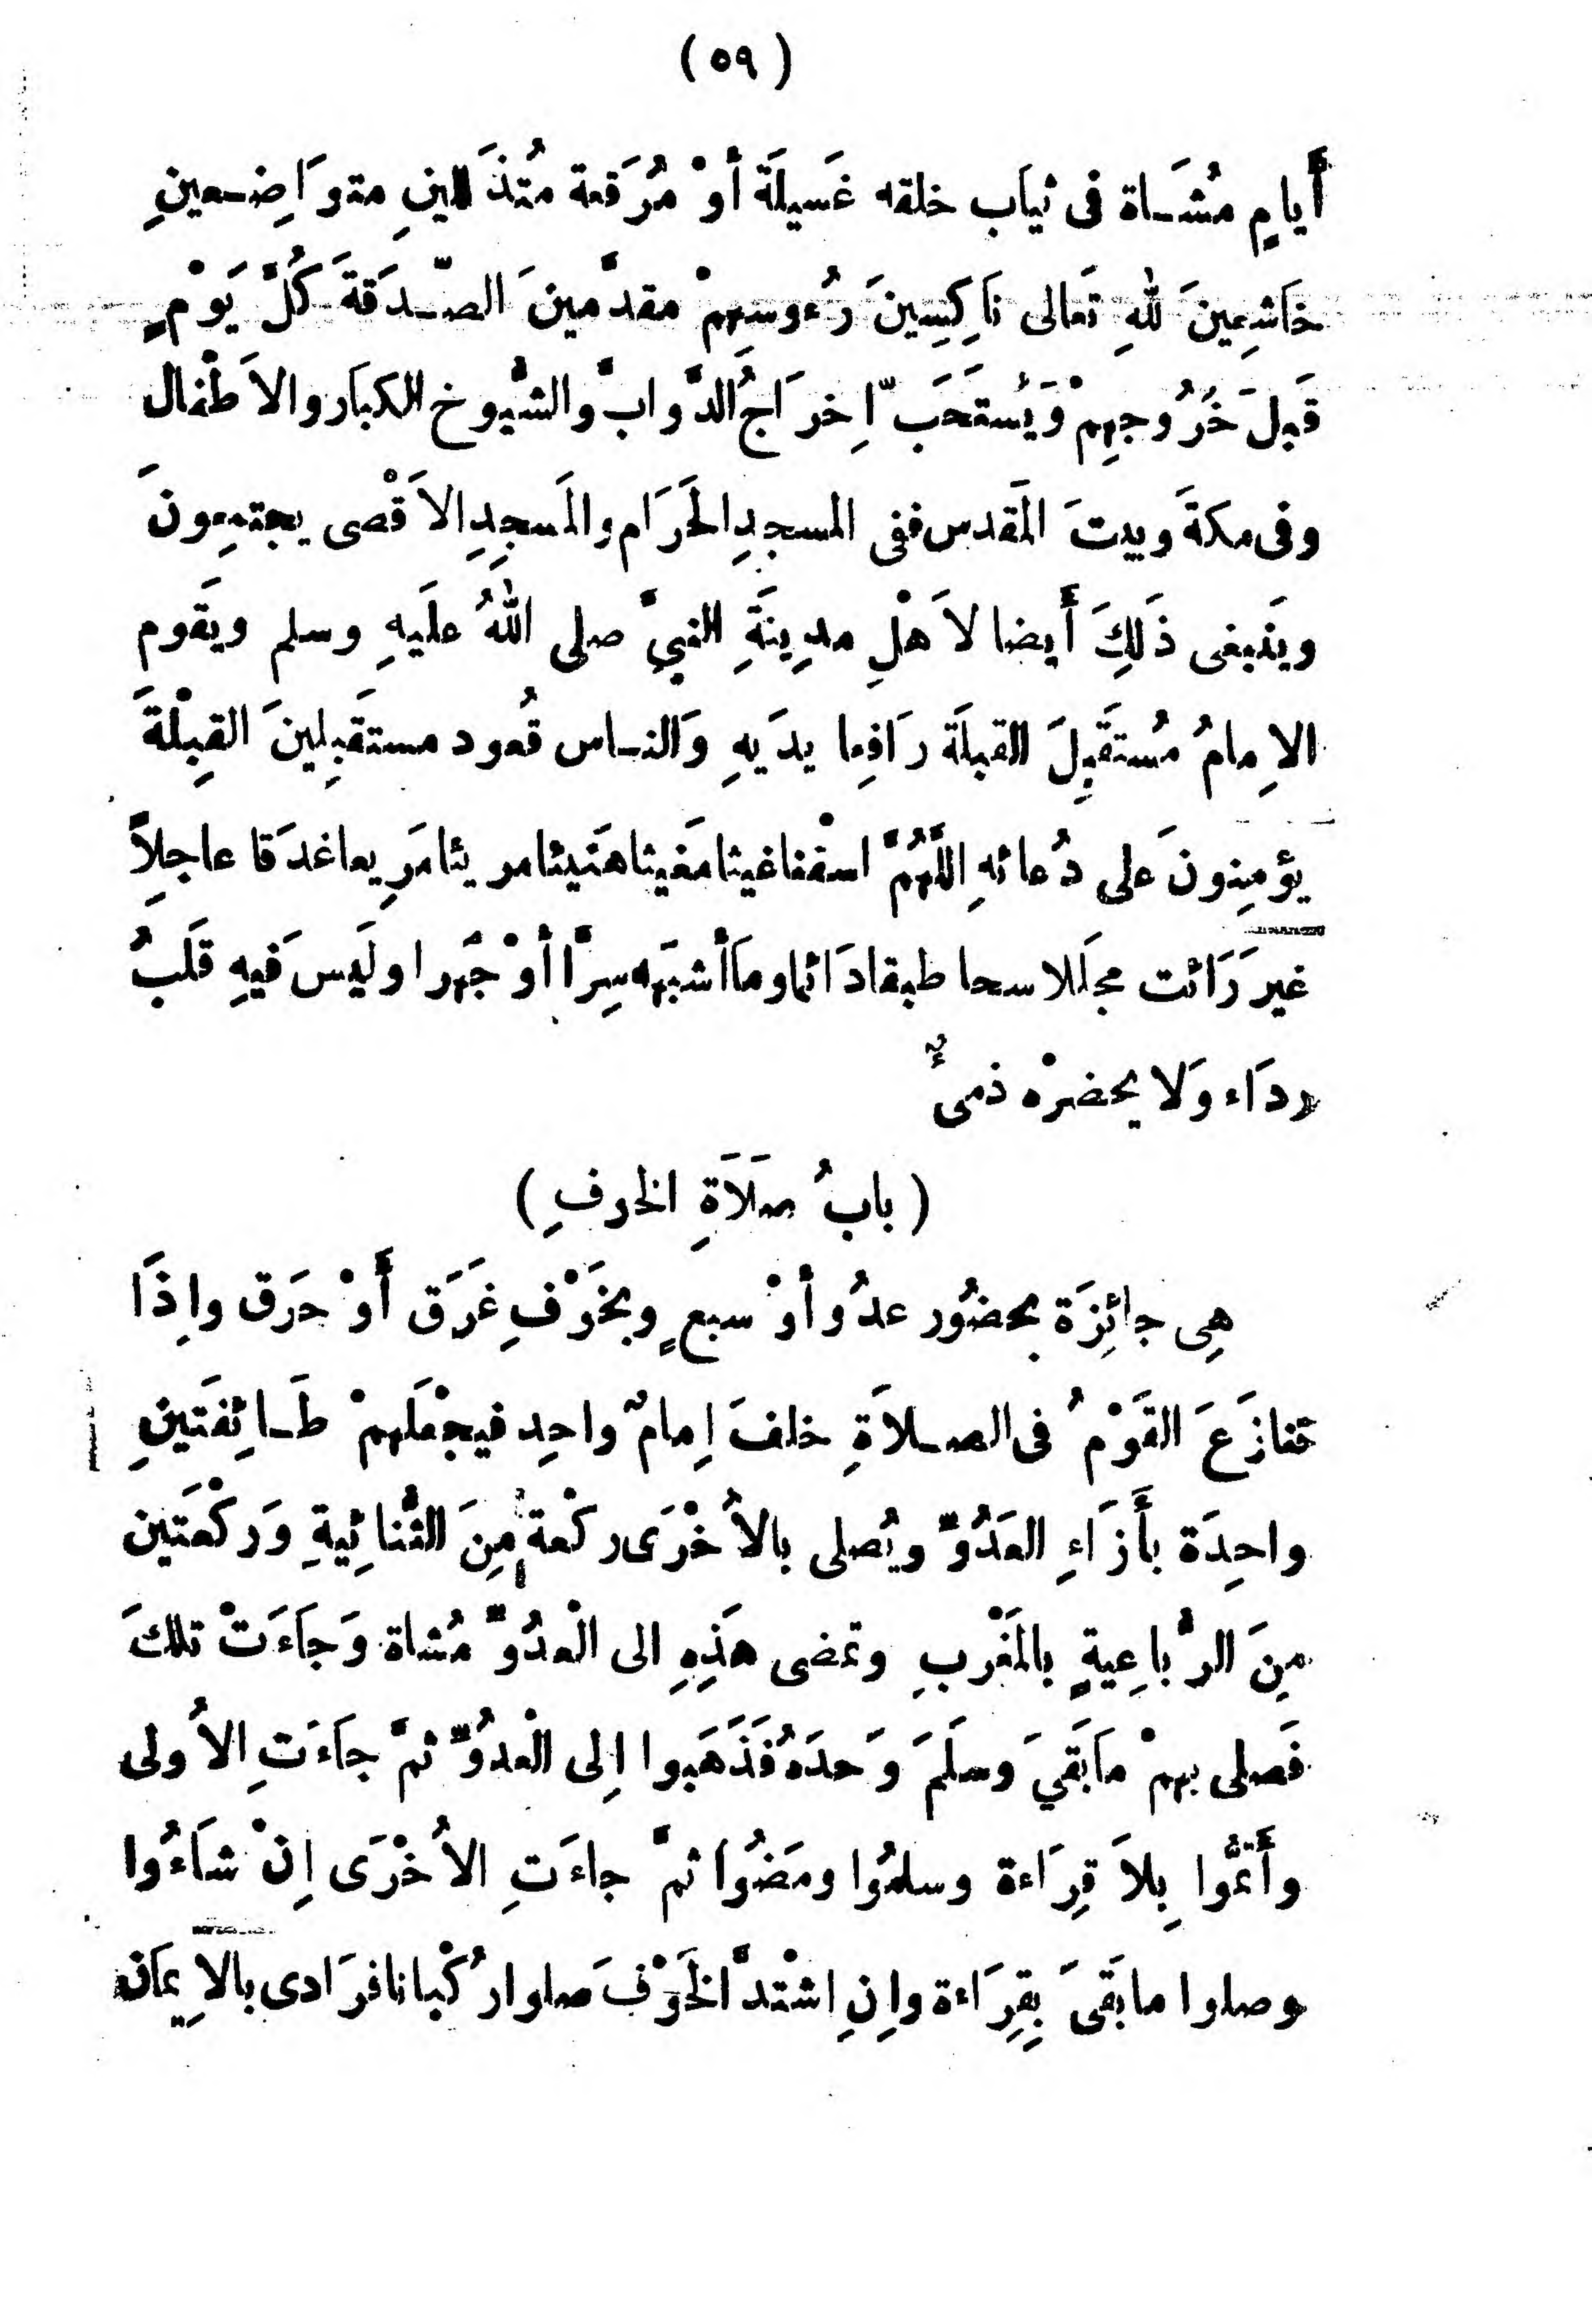 (٥٩)
أَيامٍ مُشَاة فى ثيَاب خلقه غَسيلَة أَوْ مُرَقعة مُتذَللينِ متوَاضِعينِ
خَاشِعِينَ للهِ تَعالى نَاكِسِينَ رُءوسِهِمْ مقدَّمينَ الصّدَقةَ كُلَّ يَوْمٍ
قَبلَ خُرُوجِهِمْ وَيُستَحَبّ اِخرَاجُ الدَّوابّ والشُّيوخ الكبَار والاَطْفال
وفى مكةَ وبيتَ المَقدس ففى المسجدِ الحَرَام والمَسجِدِ الاَقْصى يجتمِعونَ
وينَبغى ذَلِكَ أَيضا لاَهْلِ مدِينَةِ النبيِّ صلى اللهُ علَيهِ وسلم ويَقوم
الاِمامُ مُستَقبِلَ القبلَة رَافِعا يدَيهِ وَالناس قُعود مستَقبِلِينَ القِبِلْةَ
يؤمِنونَ على دُعائهِ اللَّهُمَّ اسْقنا غيثا مَغيثا هَنيئا مريئا مَرِيعا غدَقا عاجِلاً
غيرَ رَائت مجلَلا سحا طبقا دَائما ومَا أَشبَهه سِرًّا أَوْ جَهرا ولَيس فَيهِ قَلبُ
ردَاء وَلا يحضرْه ذمىٌّ
(بابُ صَلَاَةِ الخوفِ)
هِى جائِزَة بحضُور عدُو أَوْ سبعٍ وبخَوْفِ غَرَق أَوْ حرَق واِذَا
تنازَعَ القَوْمُ فى الصلاَةِ خلفَ اِمامٌ واحِد فيجْعَلَهمْ طَائِفَتينِ
واحِدَة بأَزَاءِ العَدُوِّ ويُصلى بالاُخْرَى ركْعة مِنَ الثُّنائِيةِ وَركْعَتَين
مِنَ الرُّباعِيةٍ بالمَغْربِ وتمضى هَذِهِ الى الْعدُوِّ مُشاة وَجَاءَتْ تلكَ
فَصلى بهمْ مَابَقَيَ وَسلَمَ وَحدَهُ فَذَهَبوا اِلى الْعدُوِّ ثمَّ جاءَتِ الاُولى
وأَتمُّوا بِلاَ قِرَاءة وسلمُوا ومَضُوا ثمَّ جاءَتِ الاُخْرَى اِنْ شاَءُوا
وصلوا مابَقىَ بِقِرَاءة واِنِ اشْتدَّ الخَوْفَ صلوا رُكْبانا فرَادى بالاِيمَان